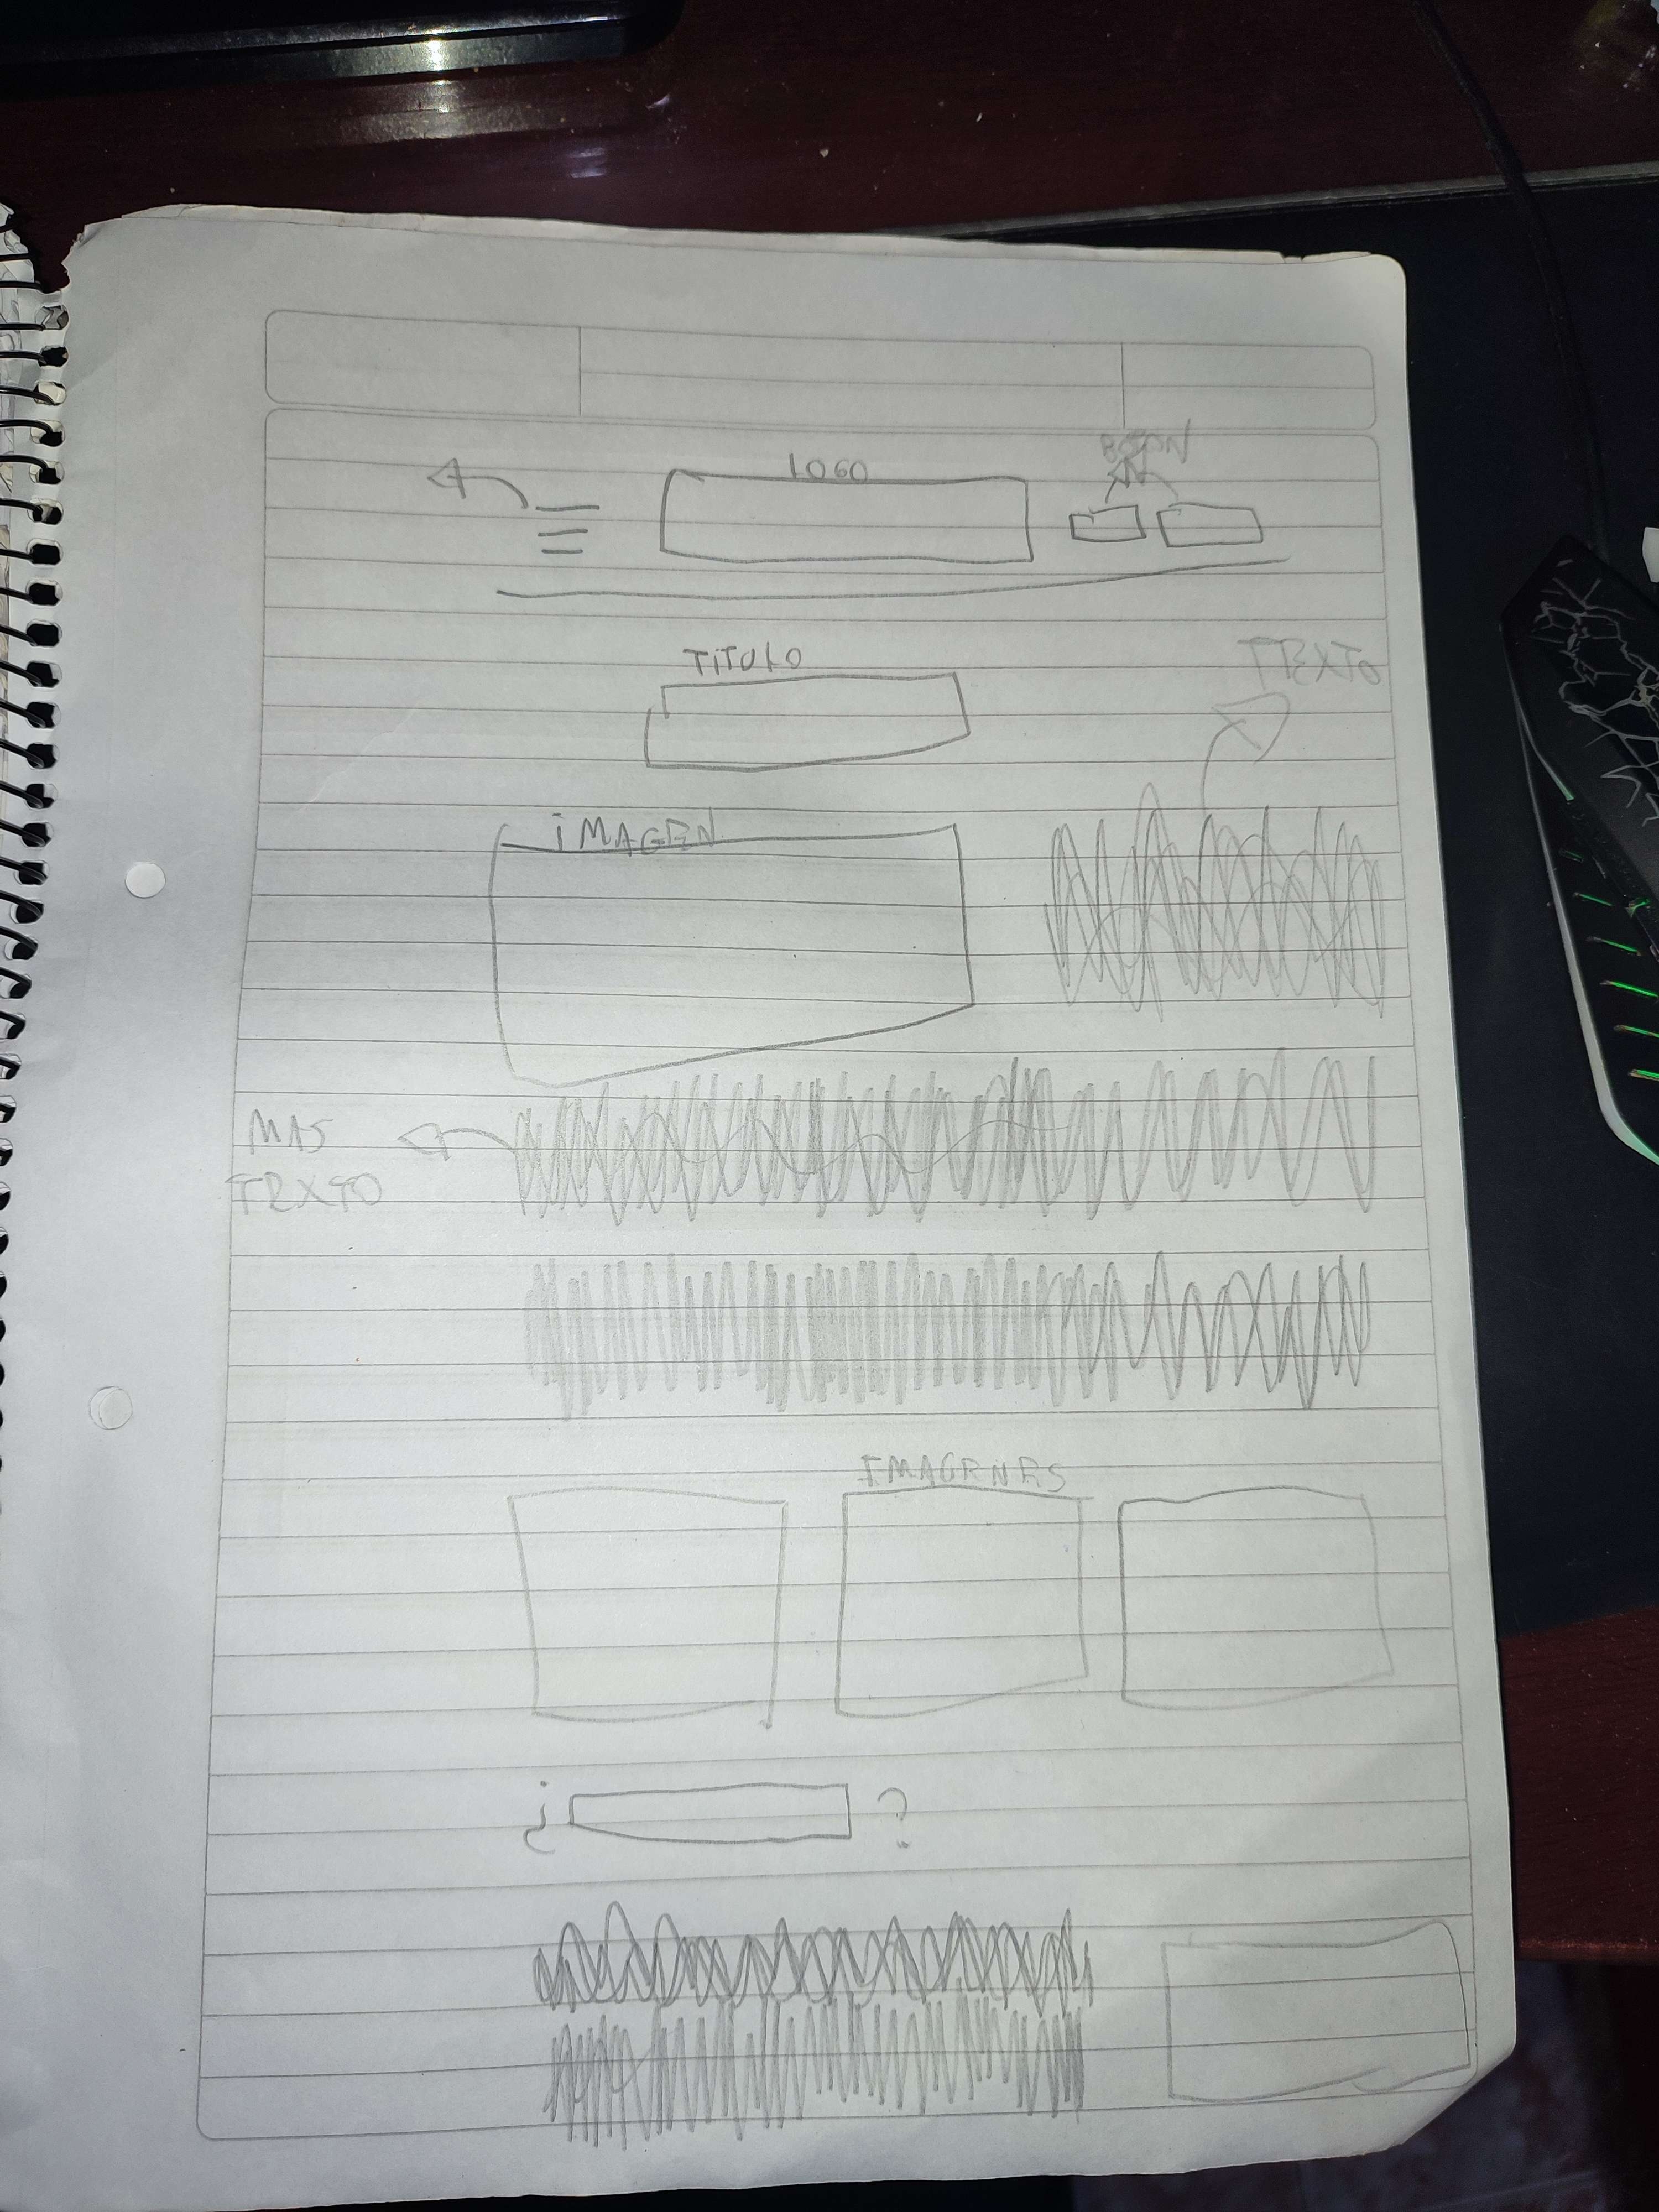 LOGO
TiTULO
TEXTO
iMAGEN
MAS
TEXTO
IMAGENES
¿ ?